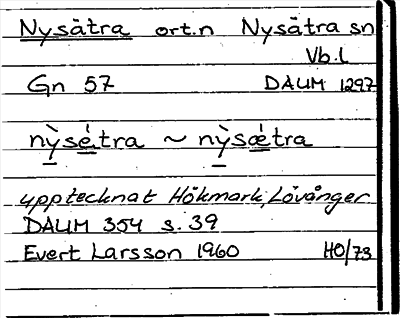 Nysätra ort.n Nysätra sn
Vb.l
Gn 57 DAUM 1297
nỳsé̱tra ~ nỳsǽtra
upptecknat Hökmark, Lövånger
DAUM 354 s. 39
Evert Larsson 1960 HO/73